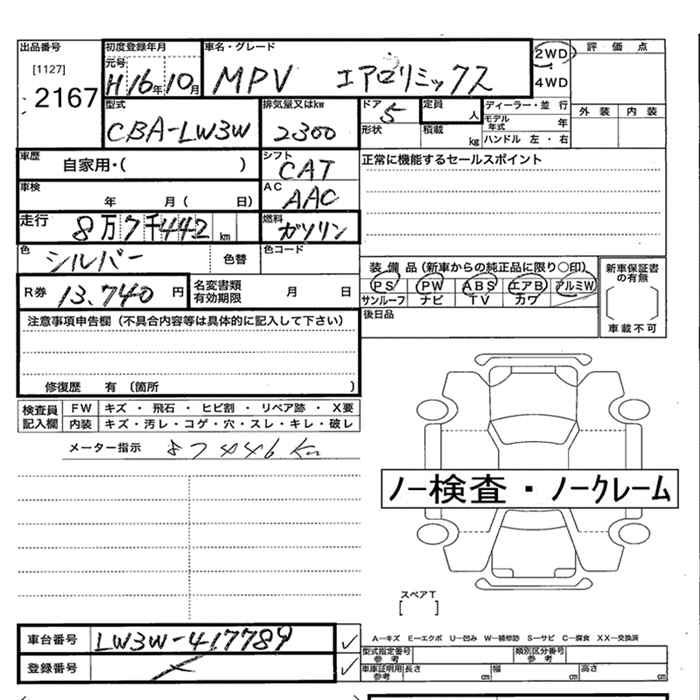 出品番号 初度登録年月 車名・グレード 評価点
[1127] 元号 2WD
2167 H16年10月 MPV エアロリミックス 4WD
型式 排気量又はkw ドア 定員 ディーラー・並行 外装 内装
CBA-LW3W 2300 5 人 モデル年式 年
形状 積載 kg ハンドル 左・右
車歴 自家用・( ) シフト CAT 正常に機能するセールスポイント
車検 年 月( 日) AC AAC
走行 8万7千442km 燃料 ガソリン
色 シルバー 色替 色コード
装備品(新車からの純正品に限り〇印) 新車保証書の有無
R券 13,740円 名変書類有効期限 月 日 PS PW ABS エアB アルミW
サンルーフ ナビ TV カワ
注意事項申告欄(不具合内容等は具体的に記入して下さい) 後日品 車載不可
修復歴 有(箇所 )
検査員記入欄 FW キズ・飛石・ヒビ割・リペア跡・X要
内装 キズ・汚レ・コゲ・穴・スレ・キレ・破レ
メーター指示 87446km
ノー検査・ノークレーム
スペアT
[ ]
車台番号 LW3W-417789 A-キズ E-エクボ U-凹み W-補修跡 S-サビ C-腐食 XX-交換済
登録番号 型式指定番号参考 類別区分番号参考
車車証明用参考 長さ cm 幅 cm 高さ cm